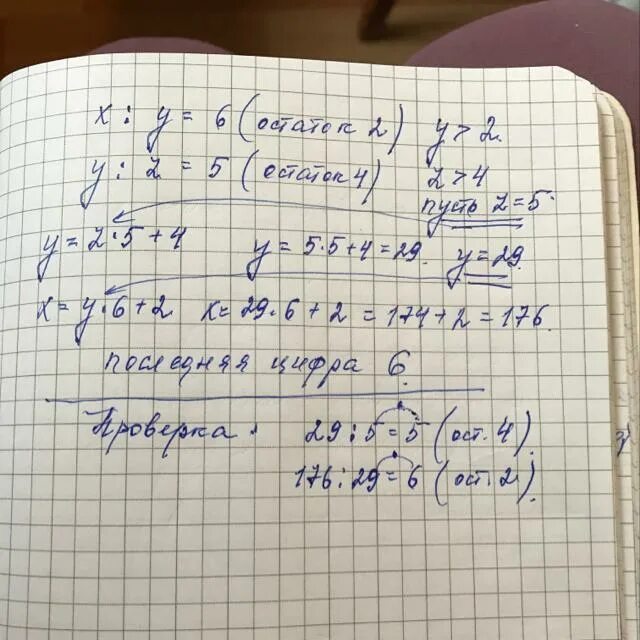 x : y = 6 (остаток 2) y > 2.
y : z = 5 (остаток 4) z > 4
пусть z = 5.
y = z · 5 + 4 y = 5 · 5 + 4 = 29. y = 29.
x = y · 6 + 2 x = 29 · 6 + 2 = 174 + 2 = 176.
последняя цифра 6.
Проверка. 29 : 5 = 5 (ост. 4).
176 : 29 = 6 (ост. 2).